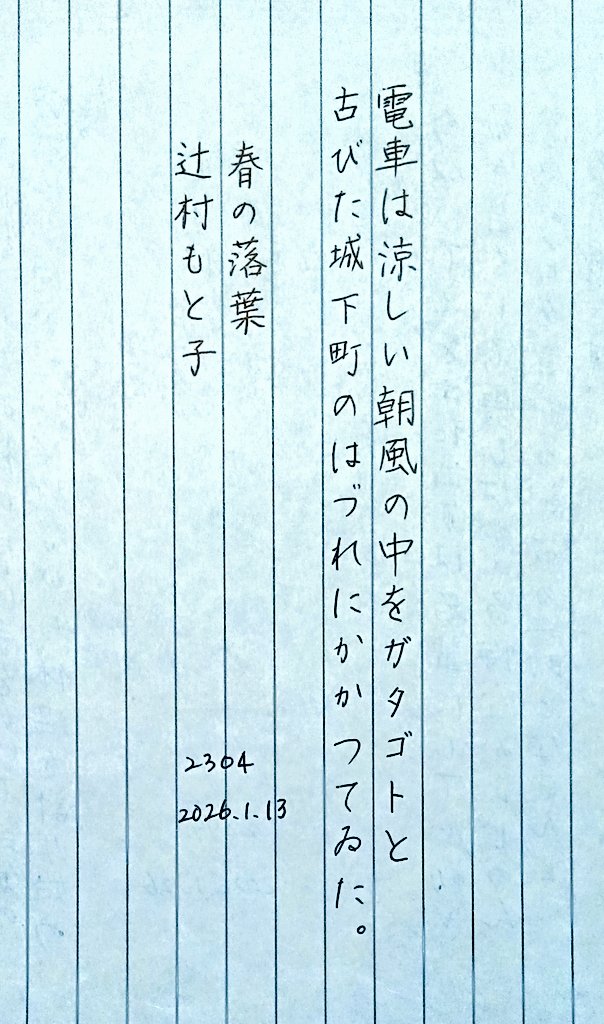 電車は涼しい朝風の中をガタゴトと
古びた城下町のはづれにかかつてゐた。
春の落葉
辻村もと子
2304
2026.1.13